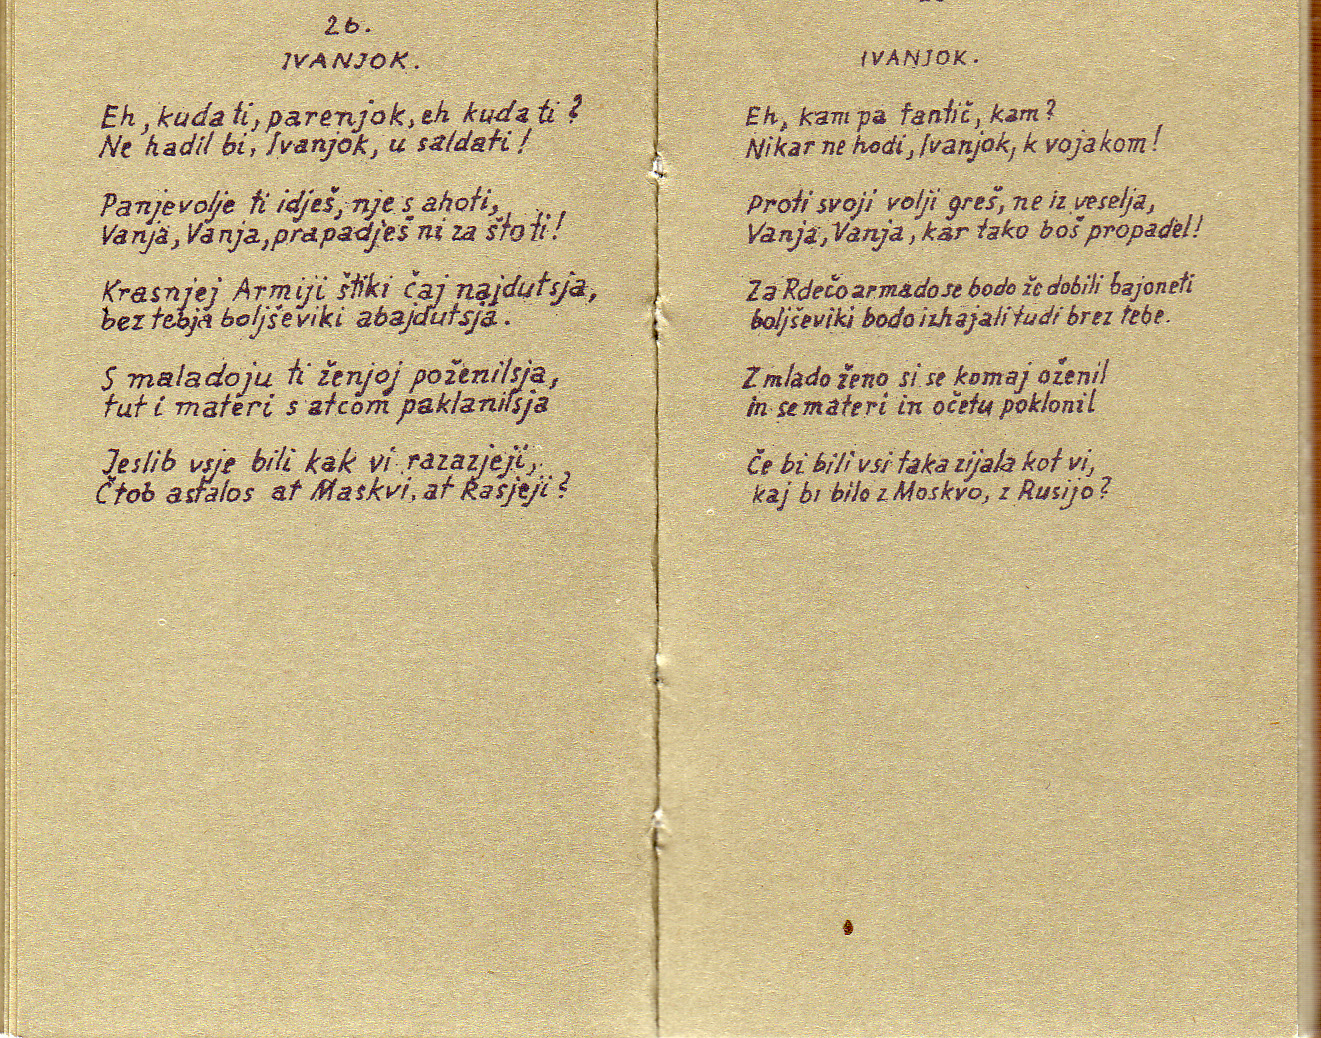 26.
IVANJOK.
Eh, kuda ti, parenjok, eh kuda ti?
Ne hadil bi, Ivanjok, u saldati!
Panjevolje ti idješ, nje s ahoti,
Vanja, Vanja, prapadješ ni za što ti!
Krasnjej Armiji štiki čaj najdutsja,
bez tebja boljševiki abajdutsja.
S maladoju ti ženjoj poženilsja,
tut i materi s atcom paklanilsja
Jeslib vsje bili kak vi razazjeji,
Čtob astalos at Maskvi, at Rasjeji?
IVANJOK.
Eh, kam pa fantič, kam?
Nikar ne hodi, Ivanjok, k vojakom!
Proti svoji volji greš, ne iz veselja,
Vanja, Vanja, kar tako boš propadel!
Za Rdečo armado se bodo že dobili bajoneti
boljševiki bodo izhajali tudi brez tebe.
Z mlado ženo si se komaj oženil
in se materi in očetu poklonil
Če bi bili vsi taka zijala kot vi,
kaj bi bilo z Moskvo, z Rusijo?